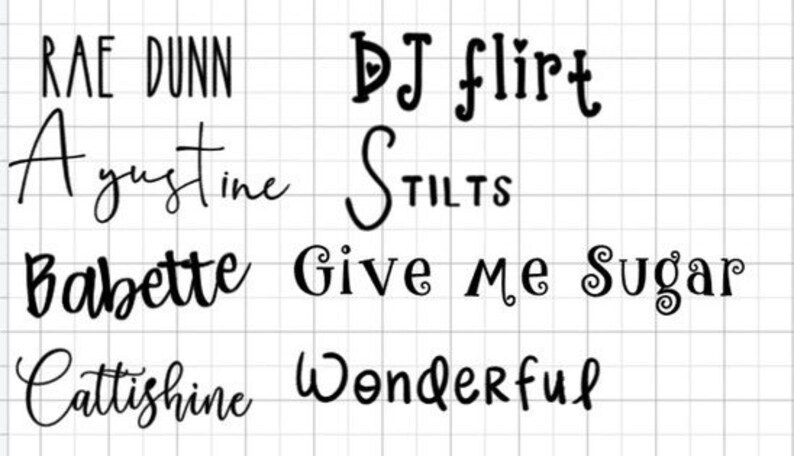 RAE DUNN
DJ flirt
Agustine
STILTS
Babette
Give Me Sugar
Cattishine
Wonderful